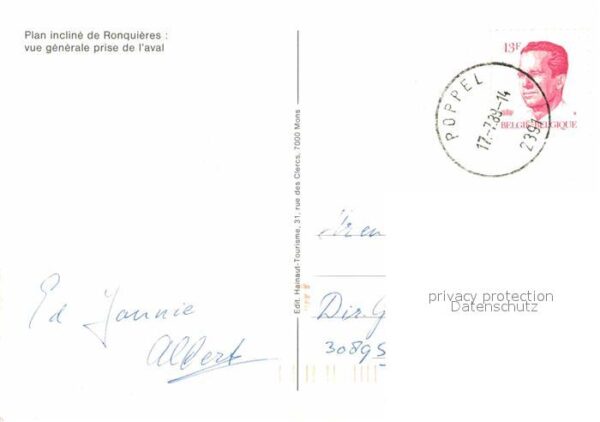 Plan incliné de Ronquières :
vue générale prise de l'aval
13F
POPPEL
17-7.89-14
2391
BELGIË-BELGIQUE
Edit. Hainaut-Tourisme, 31, rue des Clercs, 7000 Mons
privacy protection
Datenschutz
Dir.G
3089
Ed Jannie
Albert